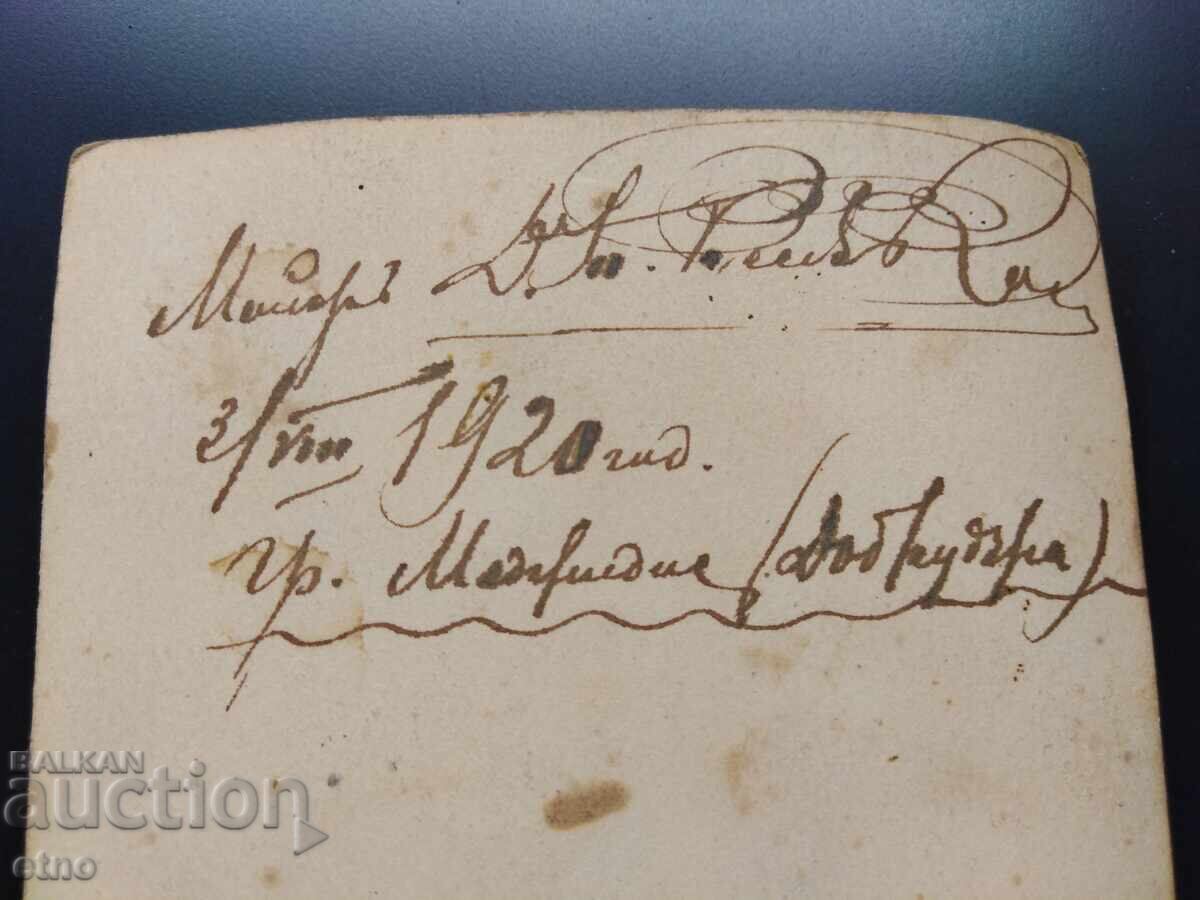 Майоръ Д. п.
3/VIII 1920 год.
гр. Меджидие (Добруджа)
BALKAN
auction
etno